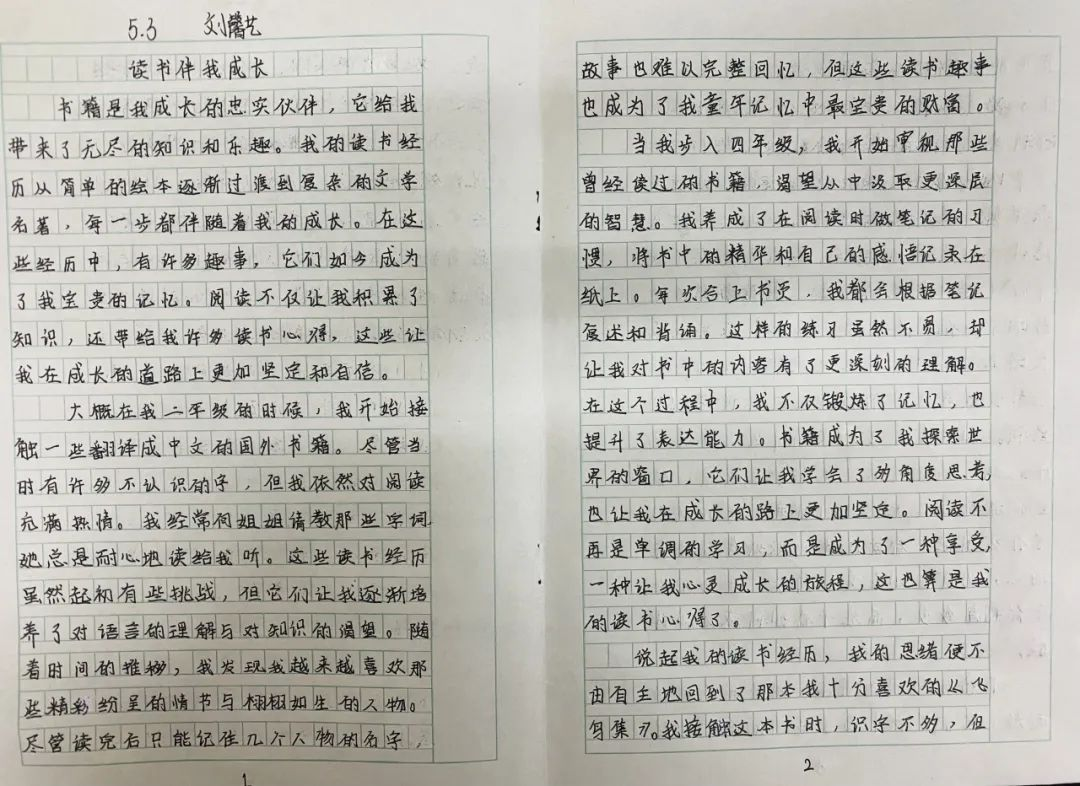 5.3 刘馨艺
读书伴我成长
书籍是我成长的忠实伙伴，它给我
带来了无尽的知识和乐趣。我的读书经
历从简单的绘本逐渐过渡到复杂的文学
名著，每一步都伴随着我的成长。在这
些经历中，有许多趣事，它们如今成为
了我宝贵的记忆。阅读不仅让我积累了
知识，还带给我许多读书心得，这些让
我在成长的道路上更加坚定和自信。
大概在我二年级的时候，我开始接
触一些翻译成中文的国外书籍。尽管当
时有许多不认识的字，但我依然对阅读
充满热情。我经常向姐姐请教那些字词
她总是耐心地读给我听。这些读书经历
虽然起初有些挑战，但它们让我逐渐培
养了对语言的理解与对知识的渴望。随
着时间的推移，我发现我越来越喜欢那
些精彩纷呈的情节与栩栩如生的人物。
尽管读完后只能记住几个人物的名字，
1
故事也难以完整回忆，但这些读书趣事
也成为了我童年记忆中最宝贵的财富。
当我步入四年级，我开始审视那些
曾经读过的书籍，渴望从中汲取更深层
的智慧。我养成了在阅读时做笔记的习
惯，将书中的精华和自己的感悟记录在
纸上。每次合上书页，我都会根据笔记
复述和背诵。这样的练习虽然不易，却
让我对书中的内容有了更深刻的理解。
在这个过程中，我不仅锻炼了记忆，也
提升了表达能力。书籍成为了我探索世
界的窗口，它们让我学会了多角度思考，
也让我在成长的路上更加坚定。阅读不
再是单调的学习，而是成为了一种享受，
一种让我心灵成长的旅程，这也算是我
的读书心得了。
说起我的读书经历，我的思绪便不
由自主地回到了那本我十分喜欢的从飞
集了。我接触这本书时，识字不多，但
2